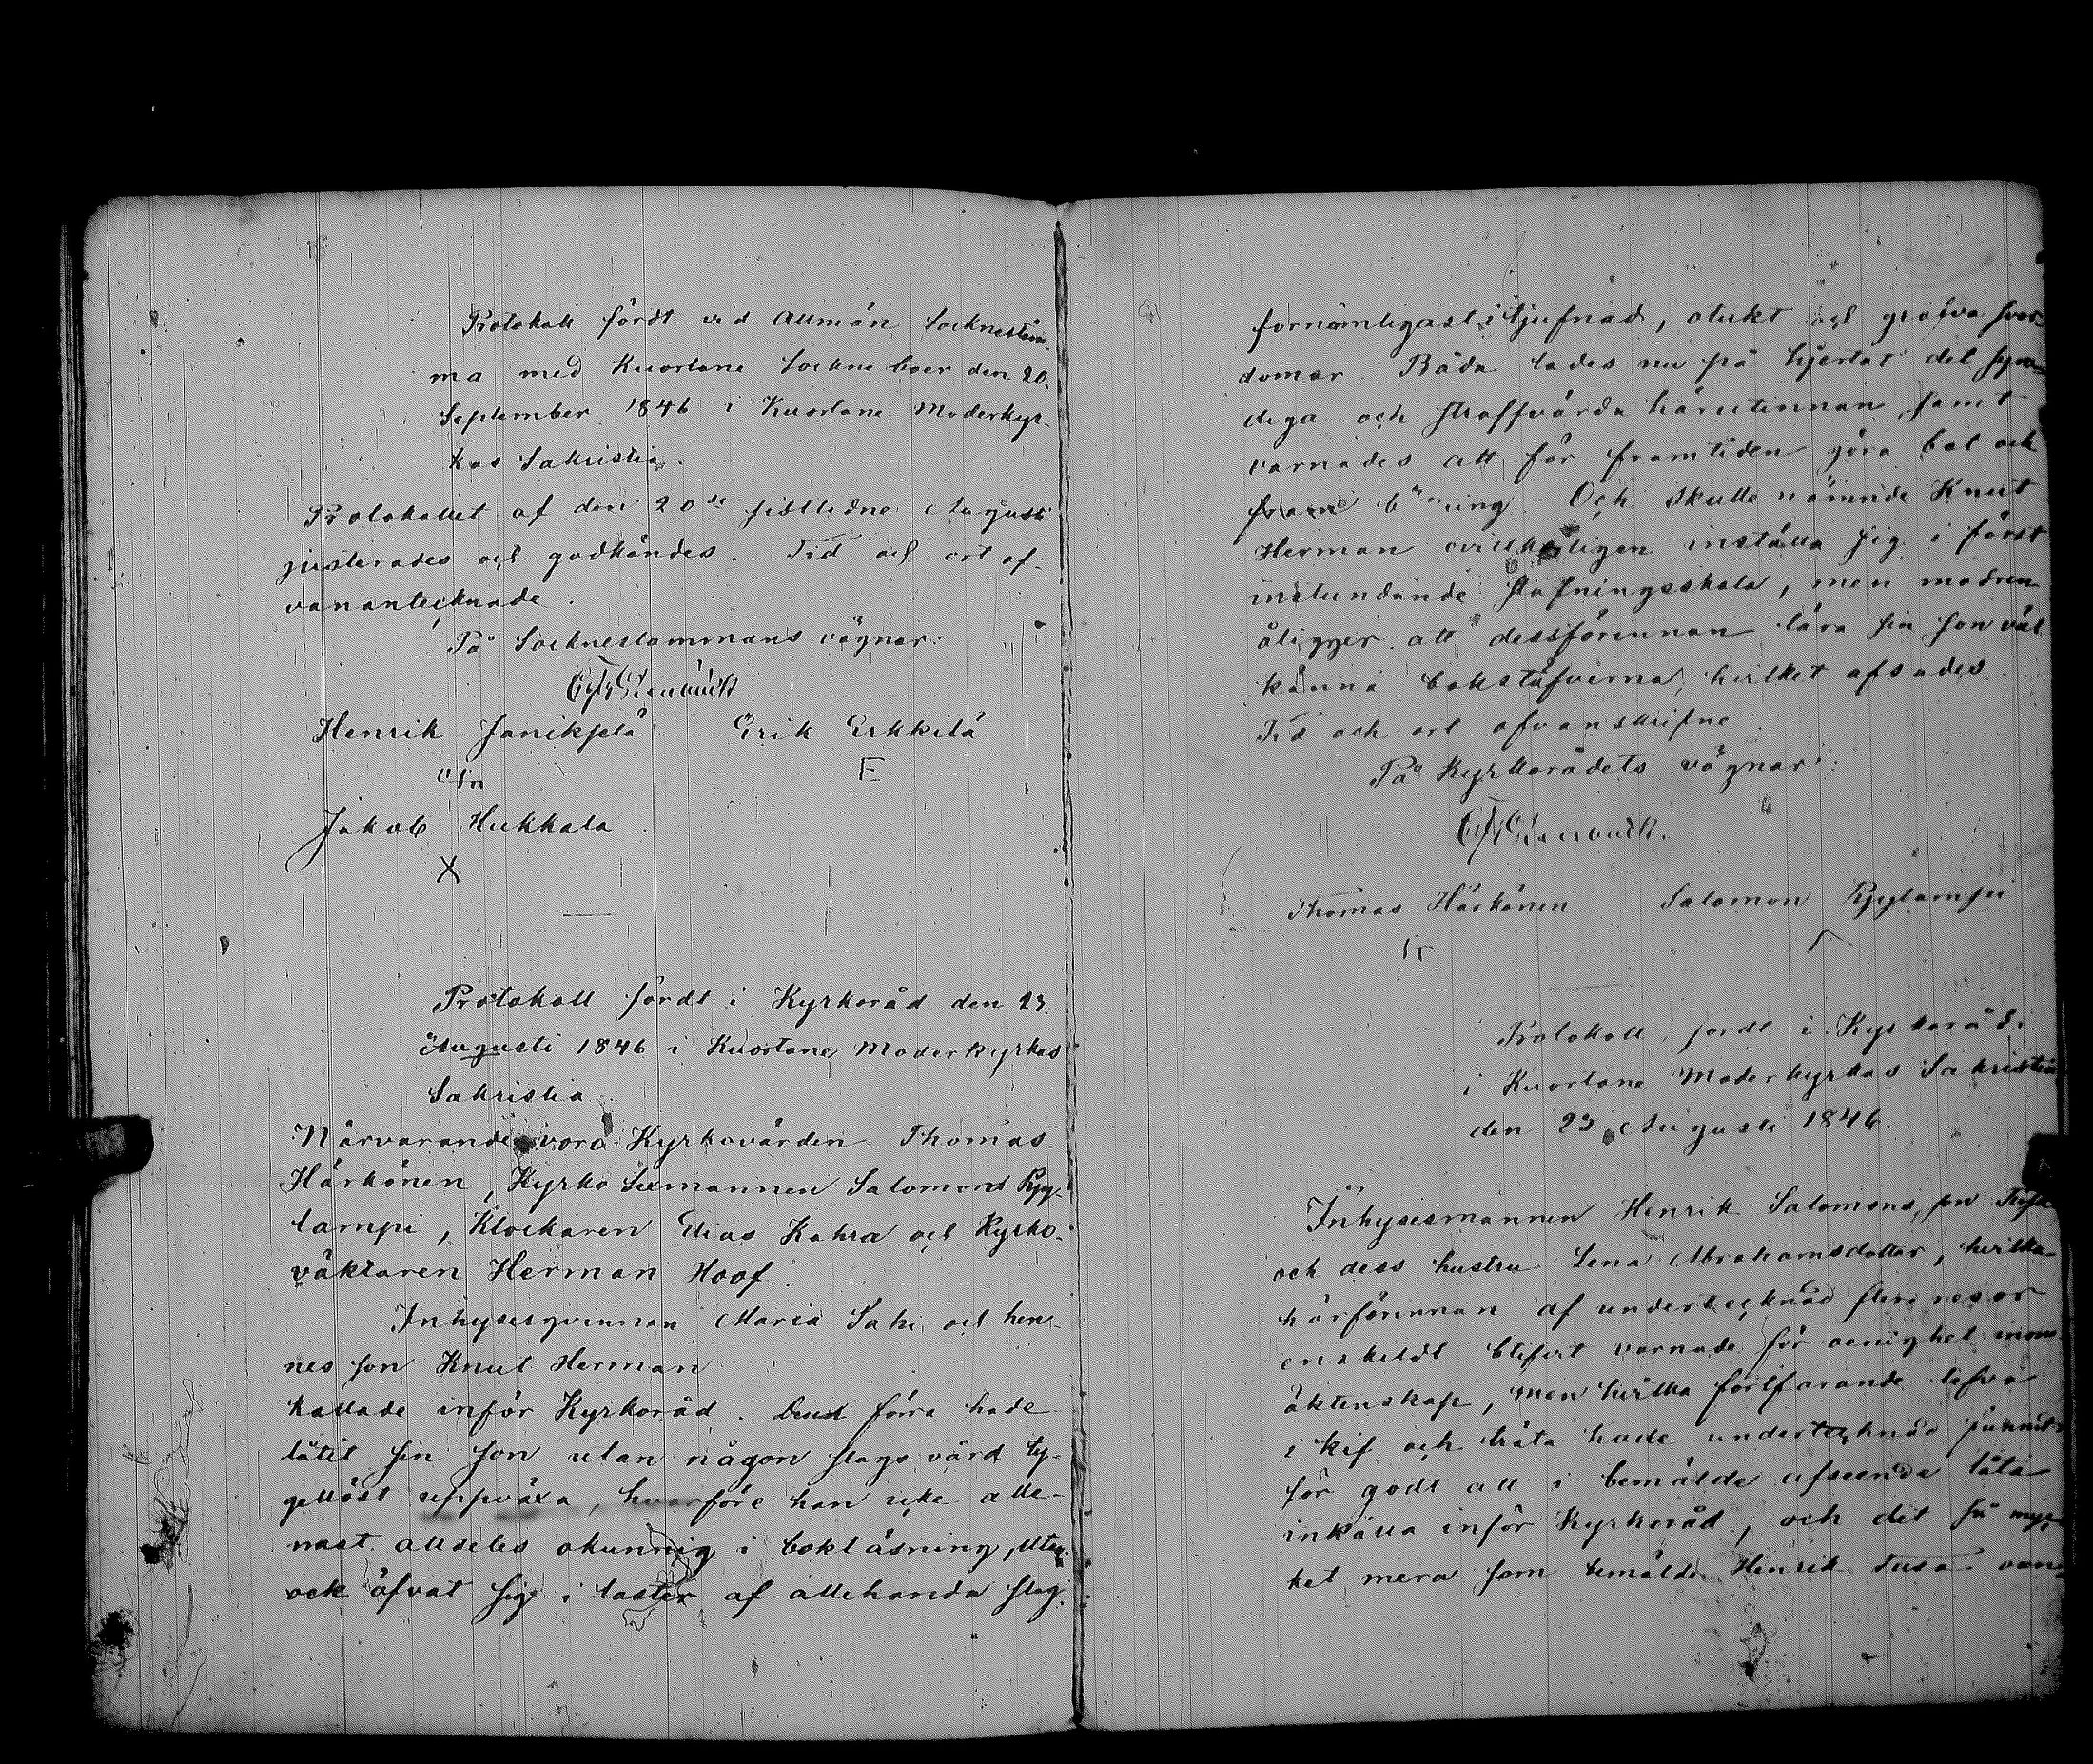 Protokoll fördt vid Allmän Socknestäm-
ma med Kuortane Sockne boer den 20.
September 1846 i Kuortane Moderkyr-
kas Sakristia.
Protokollet af den 20de sistledne Augusti
justerades och godkändes. Tid och ort of-
vanantecknade.
På Socknestämmans vägnar:
Henrik Erik Erkkilä
E
Jakob Hukkala
X
Protokoll fördt i Kyrkoråd den 23.
Augusti 1846 i Kuortane Moderkyrkas
Sakristia.
Närvarande voro Kyrkovärden Thomas
Härkönen, Kyrko Sexmannen Salomon Pyy-
lampi, Klockaren Elias Kahra och Kyrko-
väktaren Herman Hoof.
Inhysesqvinnan Maria Sahi och hen-
nes son Knut Herman
kallade inför Kyrkoråd. Den förra hade
låtit sin son utan någon slags vård ty-
gellöst uppväxa, hvarföre han icke alle-
nast alldeles okunnig i bokläsning, utan
ock öfvat sig i laster af allehanda slag,
förnämligast i tjufnad, otukt och grofva svor-
domar. Båda lades nu på hjertat det syn-
diga och straffvärda härutinnan, samt
varnades att för framtiden göra bot och
bättring. Och skulle nämnde Knut
Herman ovillkorligen inställa sig i först
instundande stafningsskola, men modren
åligger att dessförinnan lära sin son väl
känna bokstäfverna, hvilket afsades.
Tid och ort ofvanskrifne
På Kyrkorådets vägnar:
Thomas Härkönen Salomon Pyylampi
Protokoll, fördt i Kyrkoråd
i Kuortane Moderkyrkas Sakristia
den 23 Augusti 1846.
Inhysesmannen Henrik Salomons son
och dess hustru Lena Abrahamsdotter, hvilka
härförinnan af undertecknad flera resor
enskildt blifvit varnade för oenighet inom
äktenskap, men hvilka fortfarande lefva
i kif och träta hade undertecknad funnit
för godt att i bemälde afseende låta
inkalla inför Kyrkoråd, och det så myc-
ket mera som bemälde Henrik Tusa van-